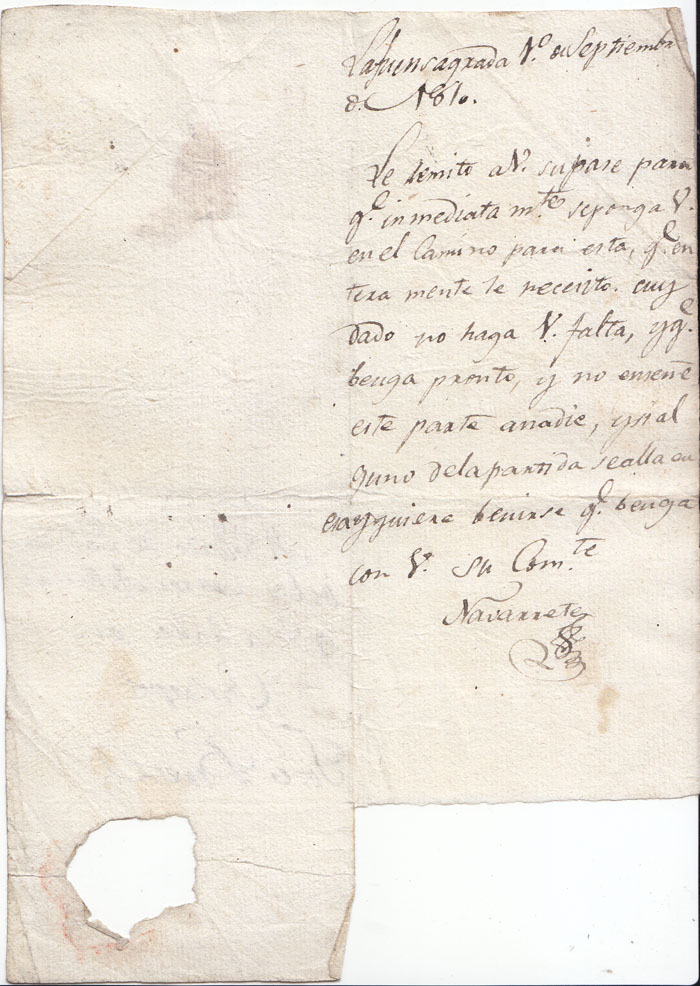 Lafuensagrada 1.º de Septiembre
de 1810.
Le remito a V. su pase para
q.e inmediata m.te seponga V.
en el Camino para esta, q.e en
tera mente le necesito. cuy
dado no haga V. falta, y q.e
benga pronto, y no enseñe
este parte anadie, y si al
guno dela partida sealla en
esa y quiere benirse q.e benga
con V. su Com.te
Navarrete